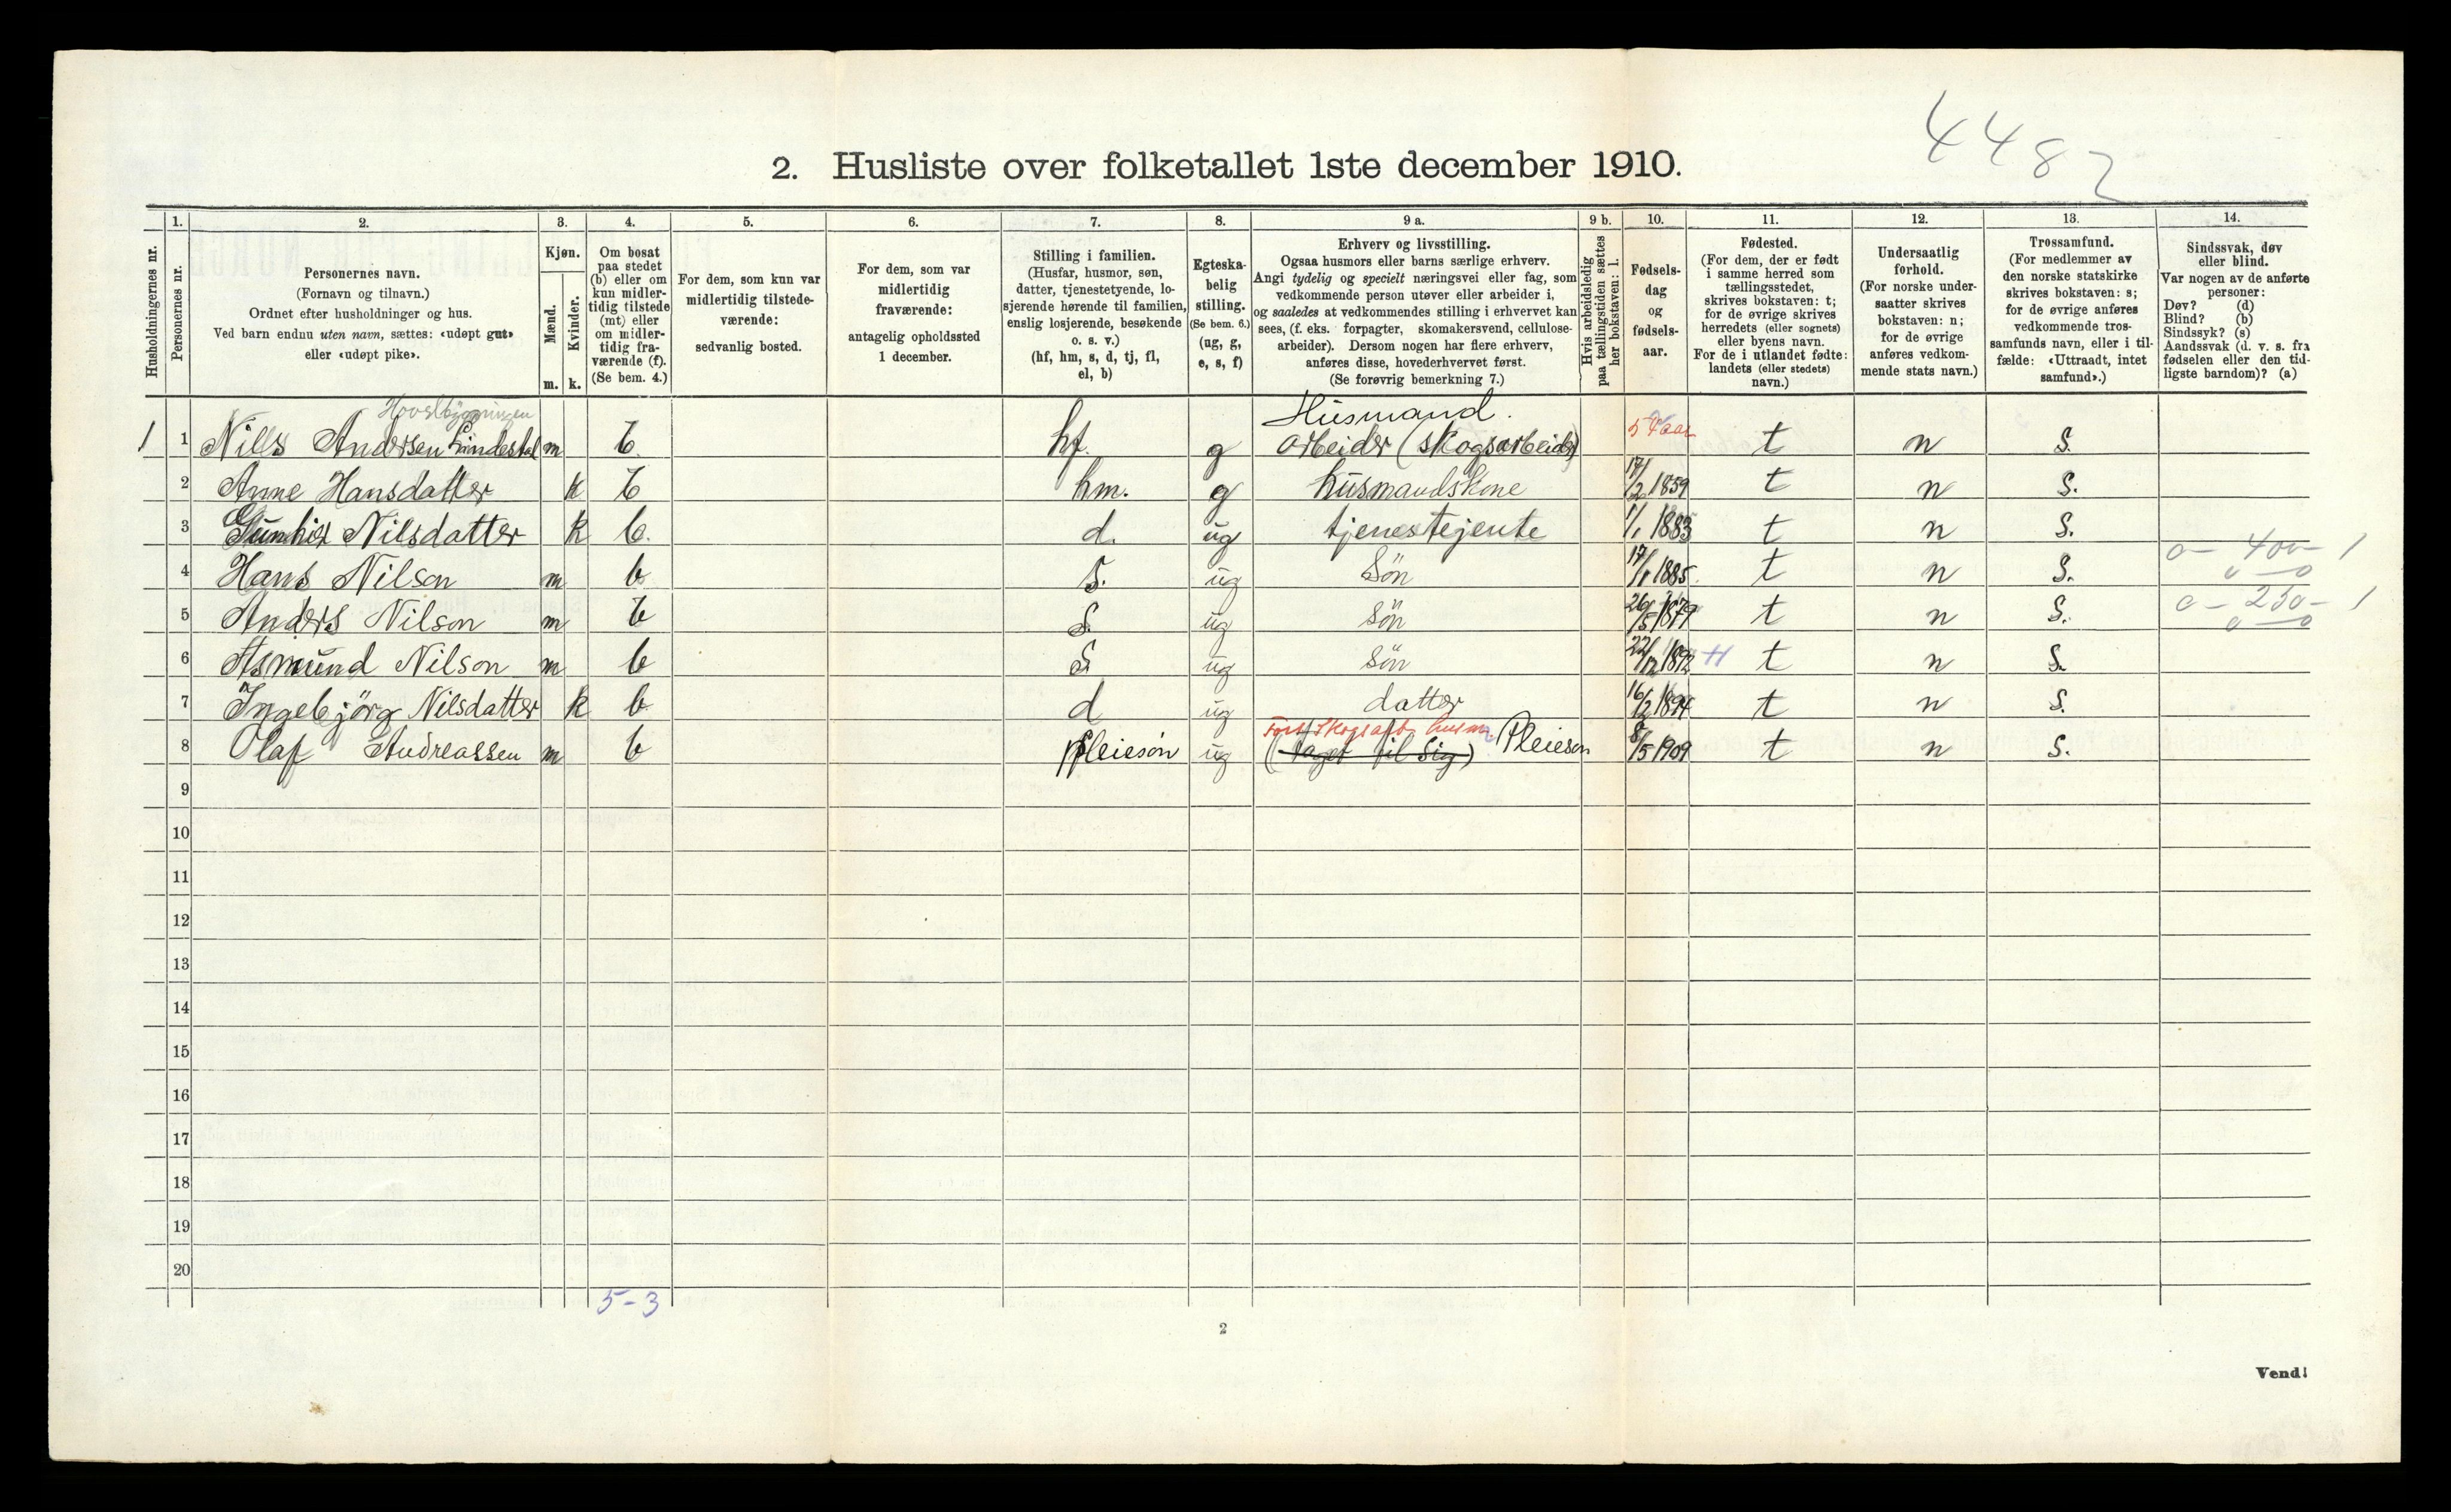 4482
2. Husliste over folketallet 1ste december 1910.
Husholdningernes nr.
1. Personernes nr.
2. Personernes navn. (Fornavn og tilnavn.) Ordnet efter husholdninger og hus. Ved barn endnu uten navn, sættes: «udøpt gut» eller «udøpt pike».
3. Kjøn. Mænd. m. Kvinder. k.
4. Om bosat paa stedet (b) eller om kun midlertidig tilstede (mt) eller om midlertidig fraværende (f). (Se bem. 4.)
5. For dem, som kun var midlertidig tilstedeværende: sedvanlig bosted.
6. For dem, som var midlertidig fraværende: antagelig opholdssted 1 december.
7. Stilling i familien. (Husfar, husmor, søn, datter, tjenestetyende, losjerende hørende til familien, enslig losjerende, besøkende o. s. v.) (hf, hm, s, d, tj, fl, el, b)
8. Egteskabelig stilling. (Se bem. 6.) (ug, g, e, s, f)
9 a. Erhverv og livsstilling. Ogsaa husmors eller barns særlige erhverv. Angi tydelig og specielt næringsvei eller fag, som vedkommende person utøver eller arbeider i, og saaledes at vedkommendes stilling i erhvervet kan sees, (f. eks. forpagter, skomakersvend, cellulosearbeider). Dersom nogen har flere erhverv, anføres disse, hovederhvervet først. (Se forøvrig bemerkning 7.)
9 b. Hvis arbeidsledig paa tællingstiden sættes her bokstaven: l.
10. Fødselsdag og fødselsaar.
11. Fødested. (For dem, der er født i samme herred som tællingsstedet, skrives bokstaven: t; for de øvrige skrives herredets (eller sognets) eller byens navn. For de i utlandet fødte: landets (eller stedets) navn.)
12. Undersaatlig forhold. (For norske undersaatter skrives bokstaven: n; for de øvrige anføres vedkommende stats navn.)
13. Trossamfund. (For medlemmer av den norske statskirke skrives bokstaven: s; for de øvrige anføres vedkommende trossamfunds navn, eller i tilfælde: «Uttraadt, intet samfund».)
14. Sindssvak, døv eller blind. Var nogen av de anførte personer: Døv? (d) Blind? (b) Sindssyk? (s) Aandssvak (d. v. s. fra fødselen eller den tidligste barndom)? (a)
Hovslbygningen Husmand.
1 1 Nills Andersen Lindestøl m b. hf. g arbeider (skogsarbeider) 57 aar t n S.
2 Anne Hansdatter k b hm. g husmandskone 17/2 1859 t n S.
3 Gunhild Nilsdatter k b. d. ug tjenestejente 1/1 1883 t n S.
4 Hans Nilson m b s. ug Sön 17/1 1885. t n S. 0 - 400 - 1
0 - 0
5 Anders Nilson m b S. ug sön 26/5 1879 t n S. 0 - 250 - 1
0 - 0
6 Asmund Nilson m b S ug sön 22/12 1892 H t n S.
7 Ingebjörg Nilsdatter k b d ug datter 16/2 1894 t n S.
Fors. Skogsarb. husm.
8 Olaf Andreassen m b pleiesön ug (taget til sig) Pleiesøn 8/5 1909 t n S.
9
10
11
12
13
14
15
16
17
18
19
20
5-3
2
Vend!